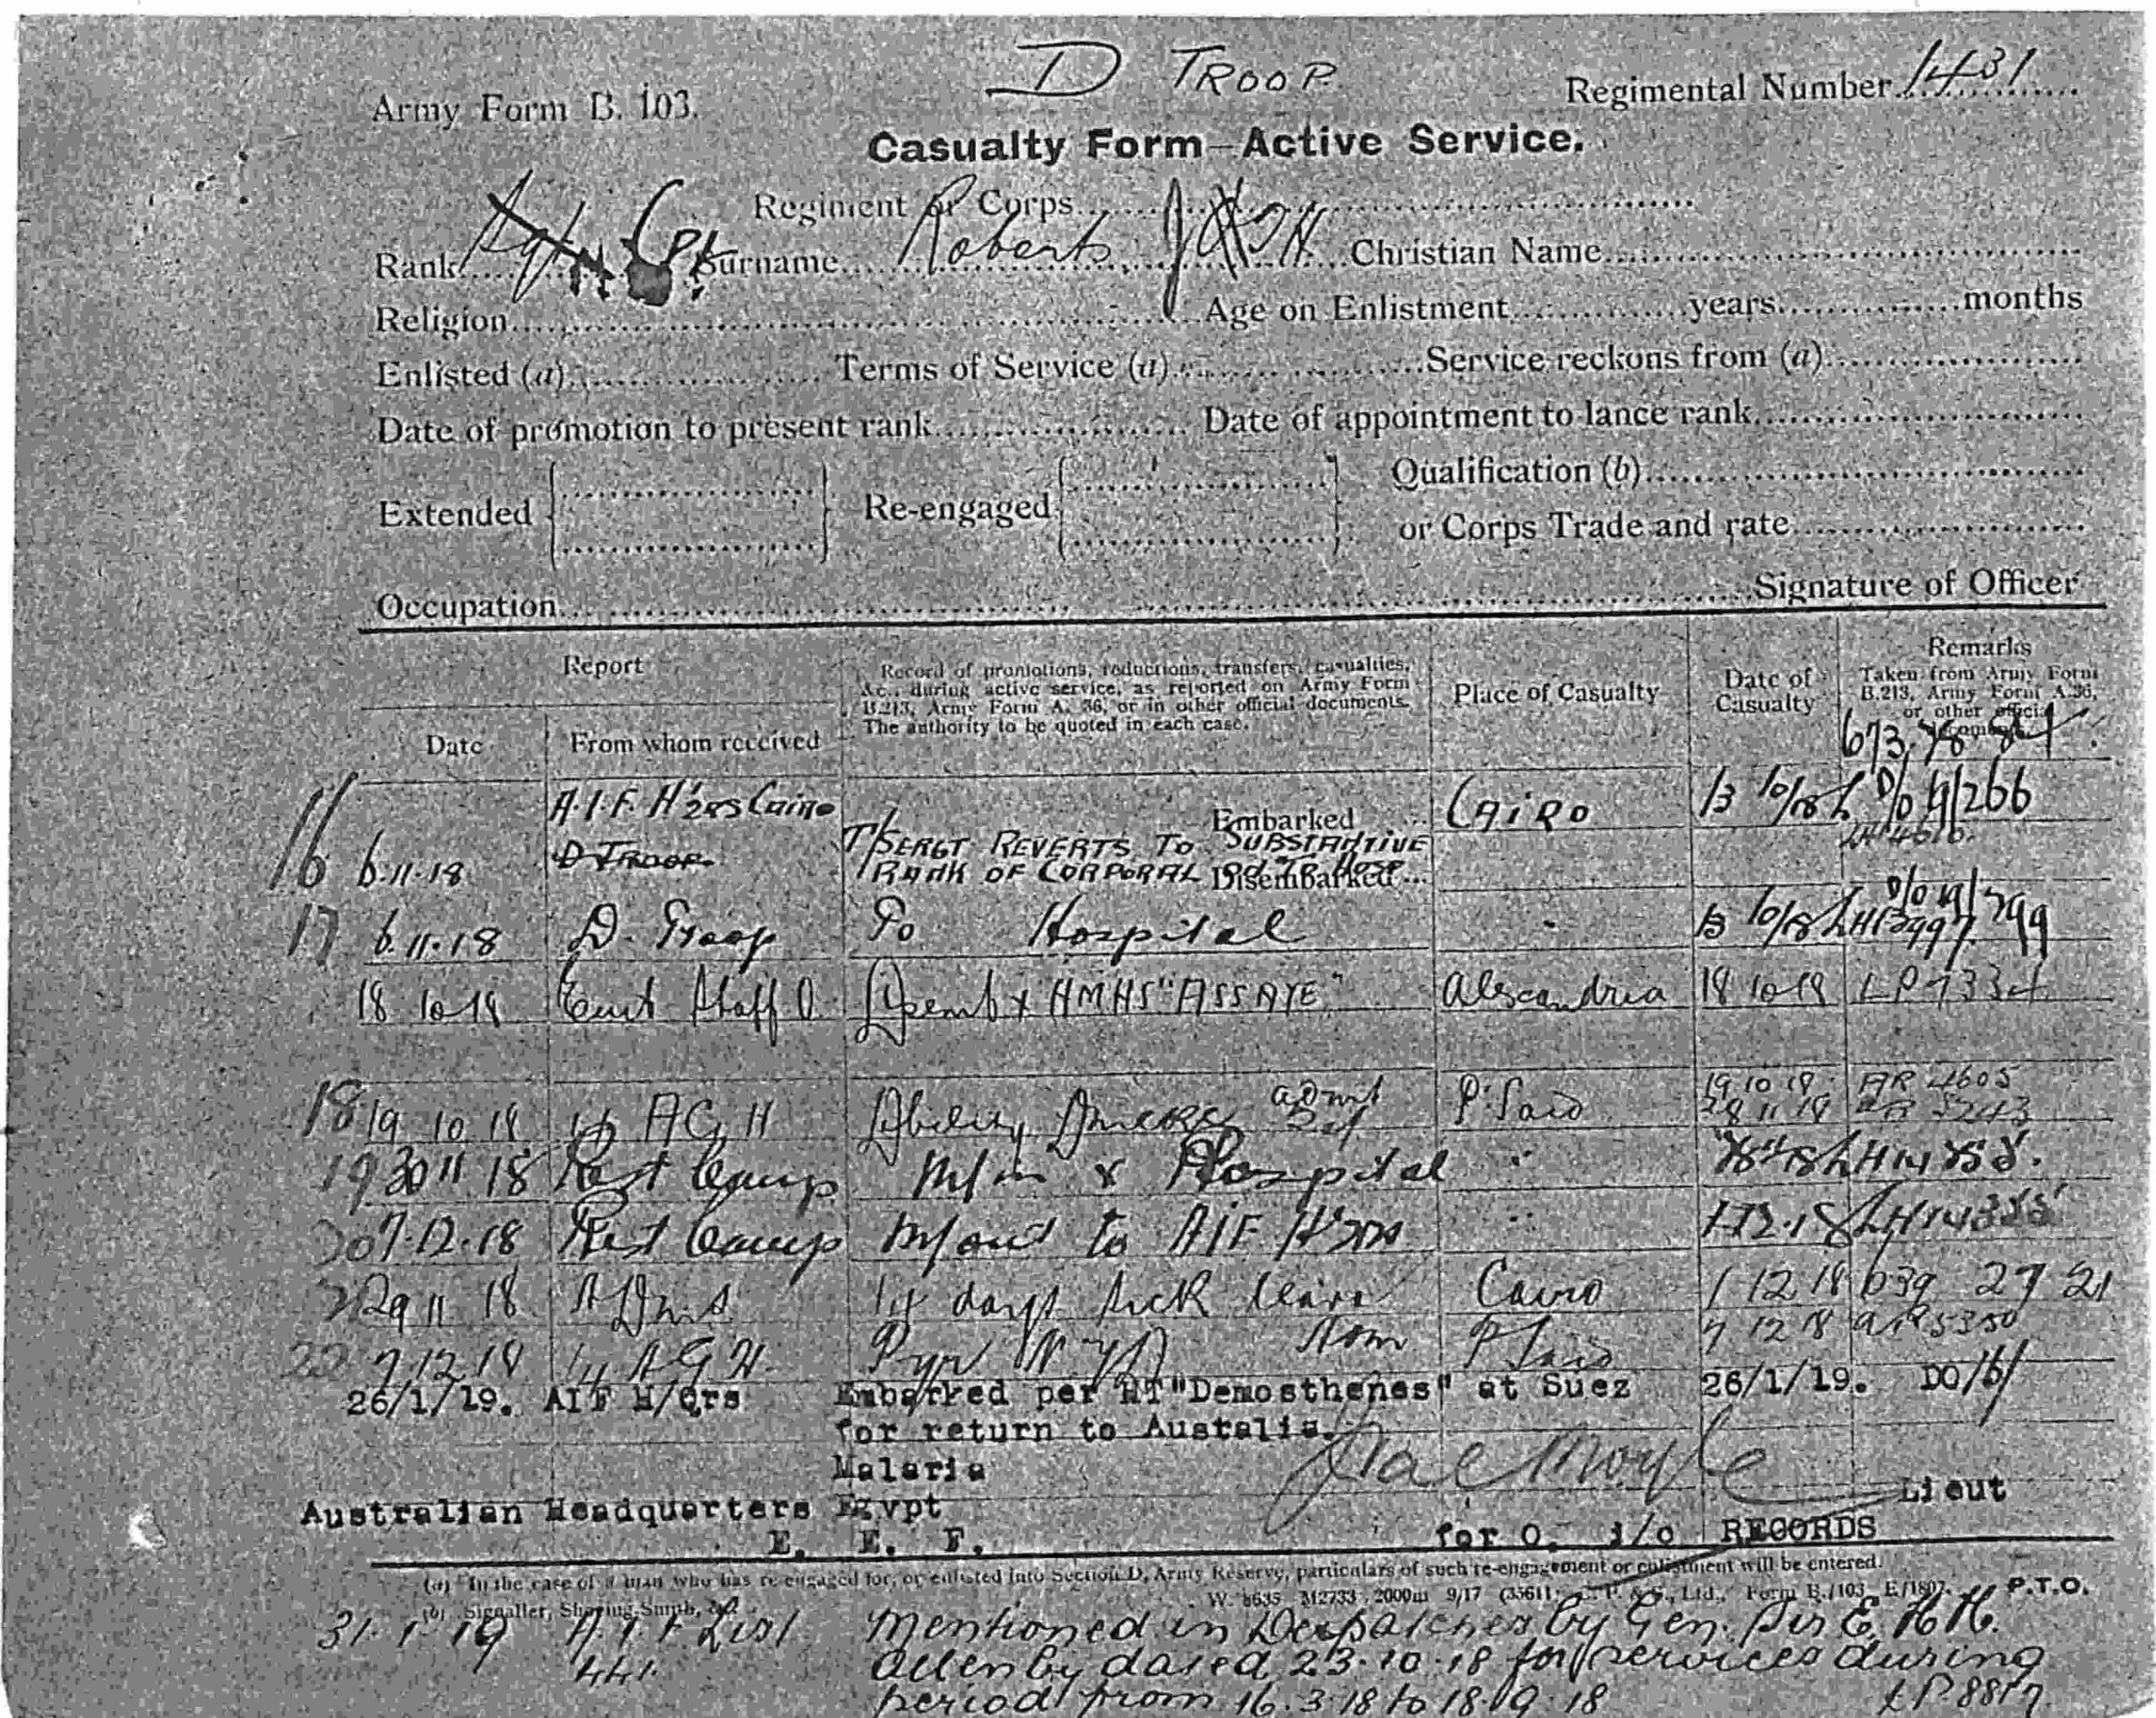 D TROOP
Army Form B. 103.
Regimental Number 1431
Casualty Form—Active Service.
Regiment or Corps
Rank Cpl Surname Roberts J Christian Name
Religion Age on Enlistment years months
Enlisted (a) Terms of Service (a) Service reckons from (a)
Date of promotion to present rank Date of appointment to lance rank
Extended Re-engaged Qualification (b)
or Corps Trade and rate
Occupation Signature of Officer
Report
Date
From whom received
Record of promotions, reductions, transfers, casualties,
&c., during active service, as reported on Army Form
B.213, Army Form A. 36, or in other official documents.
The authority to be quoted in each case.
Place of Casualty
Date of
Casualty
Remarks
Taken from Army Form
B.213, Army Form A.36,
or other official
documents
A.I.F. H'Qrs Cairo Embarked CAIRO
16 6.11.18 D TROOP T/SERGT REVERTS TO SUBSTANTIVE
RANK OF CORPORAL Disembarked
17 6.11.18 D. Troop To Hospital
18 10 18 Staff O HMHS "ASSAYE" Alexandria 18 10 18
18 19 10 18 14 AGH Debility admt P. Said 19 10 18 AR 4605
28 11 18 5243
19 30 11 18 Rest Camp M/in x Hospital
20 7.12.18 Rest Camp M/out to AIF H'Qrs
29 11 18 14 days sick leave Cairo 1 12 18 639 27 21
22 7.12.18 14 AGH P Said 7 12 18 AR 5350
26/1/19. AIF H/Qrs Embarked per HT "Demosthenes" at Suez 26/1/19. DO/6/
for return to Australia.
Malaria
Lieut
Australian Headquarters Egypt
E. E. F. for O. i/c RECORDS
(a) In the case of a man who has re-engaged for, or enlisted into Section D, Army Reserve, particulars of such re-engagement or enlistment will be entered.
(b) Signaller, Shoeing Smith, &c.
W. 8635 M2733 2000m 9/17 Ltd., Form B./103 E/1807. P.T.O.
31.1.19 A.I.F List Mentioned in Despatches by Gen. Sir E.H.H.
441. Allenby dated 23.10.18 for services during
period from 16.3.18 to 18.9.18